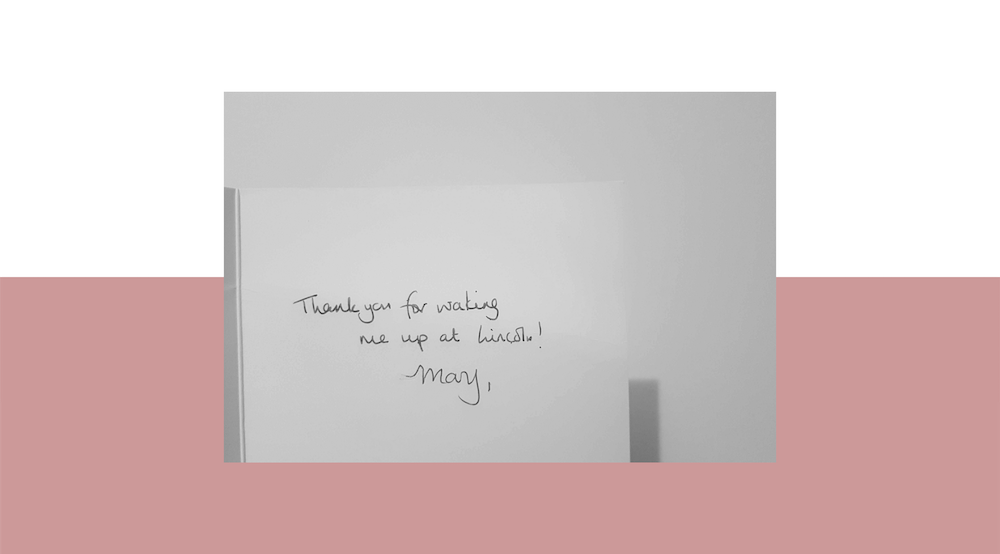 Thank you for waking
me up at Lincoln!
May,